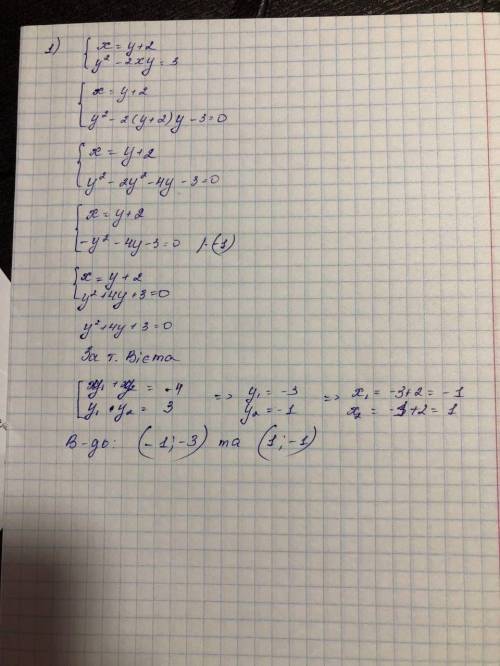 1) { x = y+2
y² - 2xy = 3
{ x = y+2
y² - 2(y+2)y - 3 = 0
{ x = y+2
y² - 2y² - 4y - 3 = 0
{ x = y+2
-y² - 4y - 3 = 0 |·(-1)
{ x = y+2
y² + 4y + 3 = 0
y² + 4y + 3 = 0
За т. Вієта
{ y₁ + y₂ = -4 => y₁ = -3 => x₁ = -3+2 = -1
y₁ · y₂ = 3 y₂ = -1 x₂ = -1+2 = 1
В-дь: (-1; -3) та (1; -1)